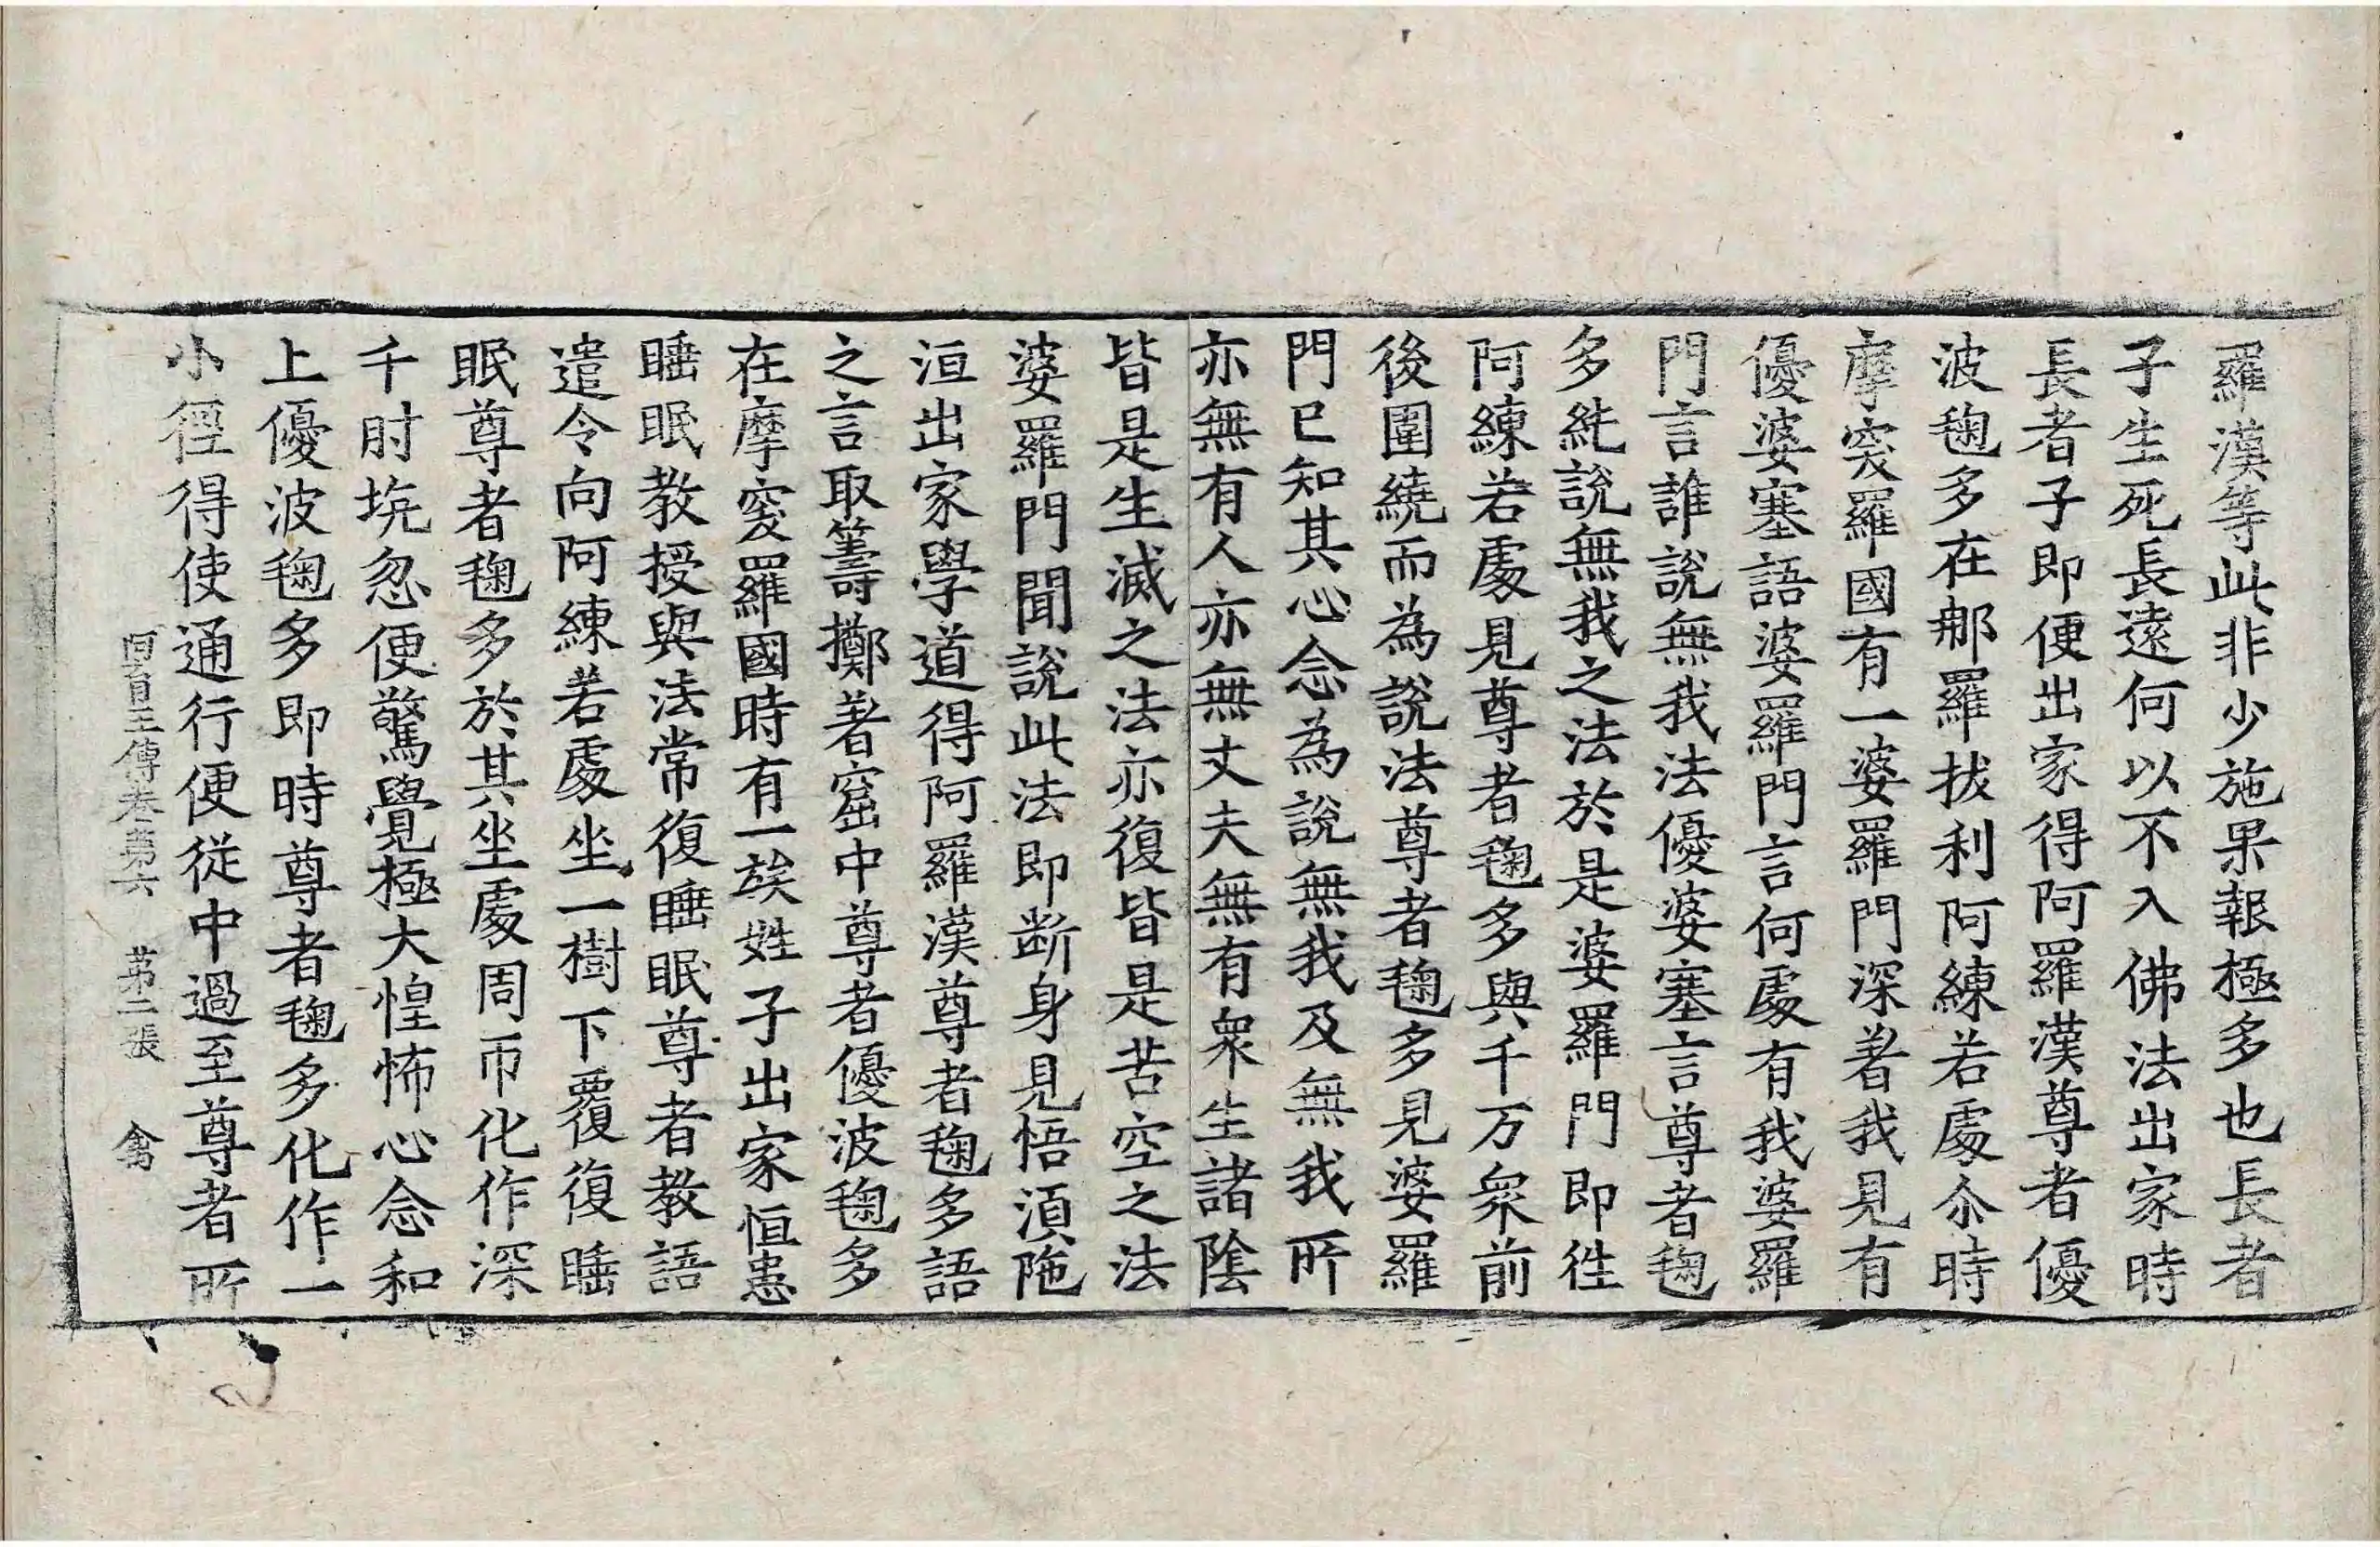 羅漢等此非少施果報極多也長者
子生死長遠何以不入佛法出家時
長者子即便出家得阿羅漢尊者優
波毱多在那羅拔利阿練若處尒時
摩突羅國有一婆羅門深著我見有
優婆塞語婆羅門言何處有我婆羅
門言誰說無我法優婆塞言尊者毱
多純說無我之法於是婆羅門即徃
阿練若處見尊者毱多與千万衆前
後圍繞而為說法尊者毱多見婆羅
門已知其心念為說無我及無我所
亦無有人亦無丈夫無有衆生諸陰
皆是生滅之法亦復皆是苦空之法
婆羅門聞說此法即断身見悟湏陁
洹出家學道得阿羅漢尊者毱多語
之言取籌擲著窟中尊者優波毱多
在摩突羅國時有一族姓子出家恒患
睡眠教授與法常復睡眠尊者教語
遣令向阿練若處坐一樹下覆復睡
眠尊者毱多於其坐處周帀化作深
千肘坑忽便驚覺極大惶怖心念和
上優波毱多即時尊者毱多化作一
小徑得使通行便從中過至尊者所
阿育王傳卷第六　第二張　禽